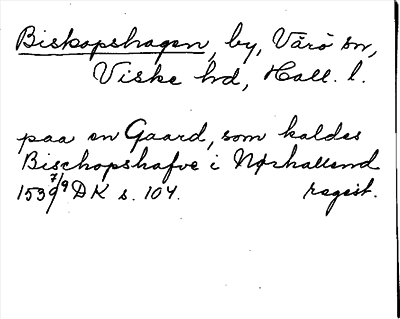 Biskopshagen, by, Värö sn,
Viske hd, Hall. l.
paa en Gaard, som kaldes
Bischopshafve i Nørhallend
1539 7/9 DK s. 104. regist.